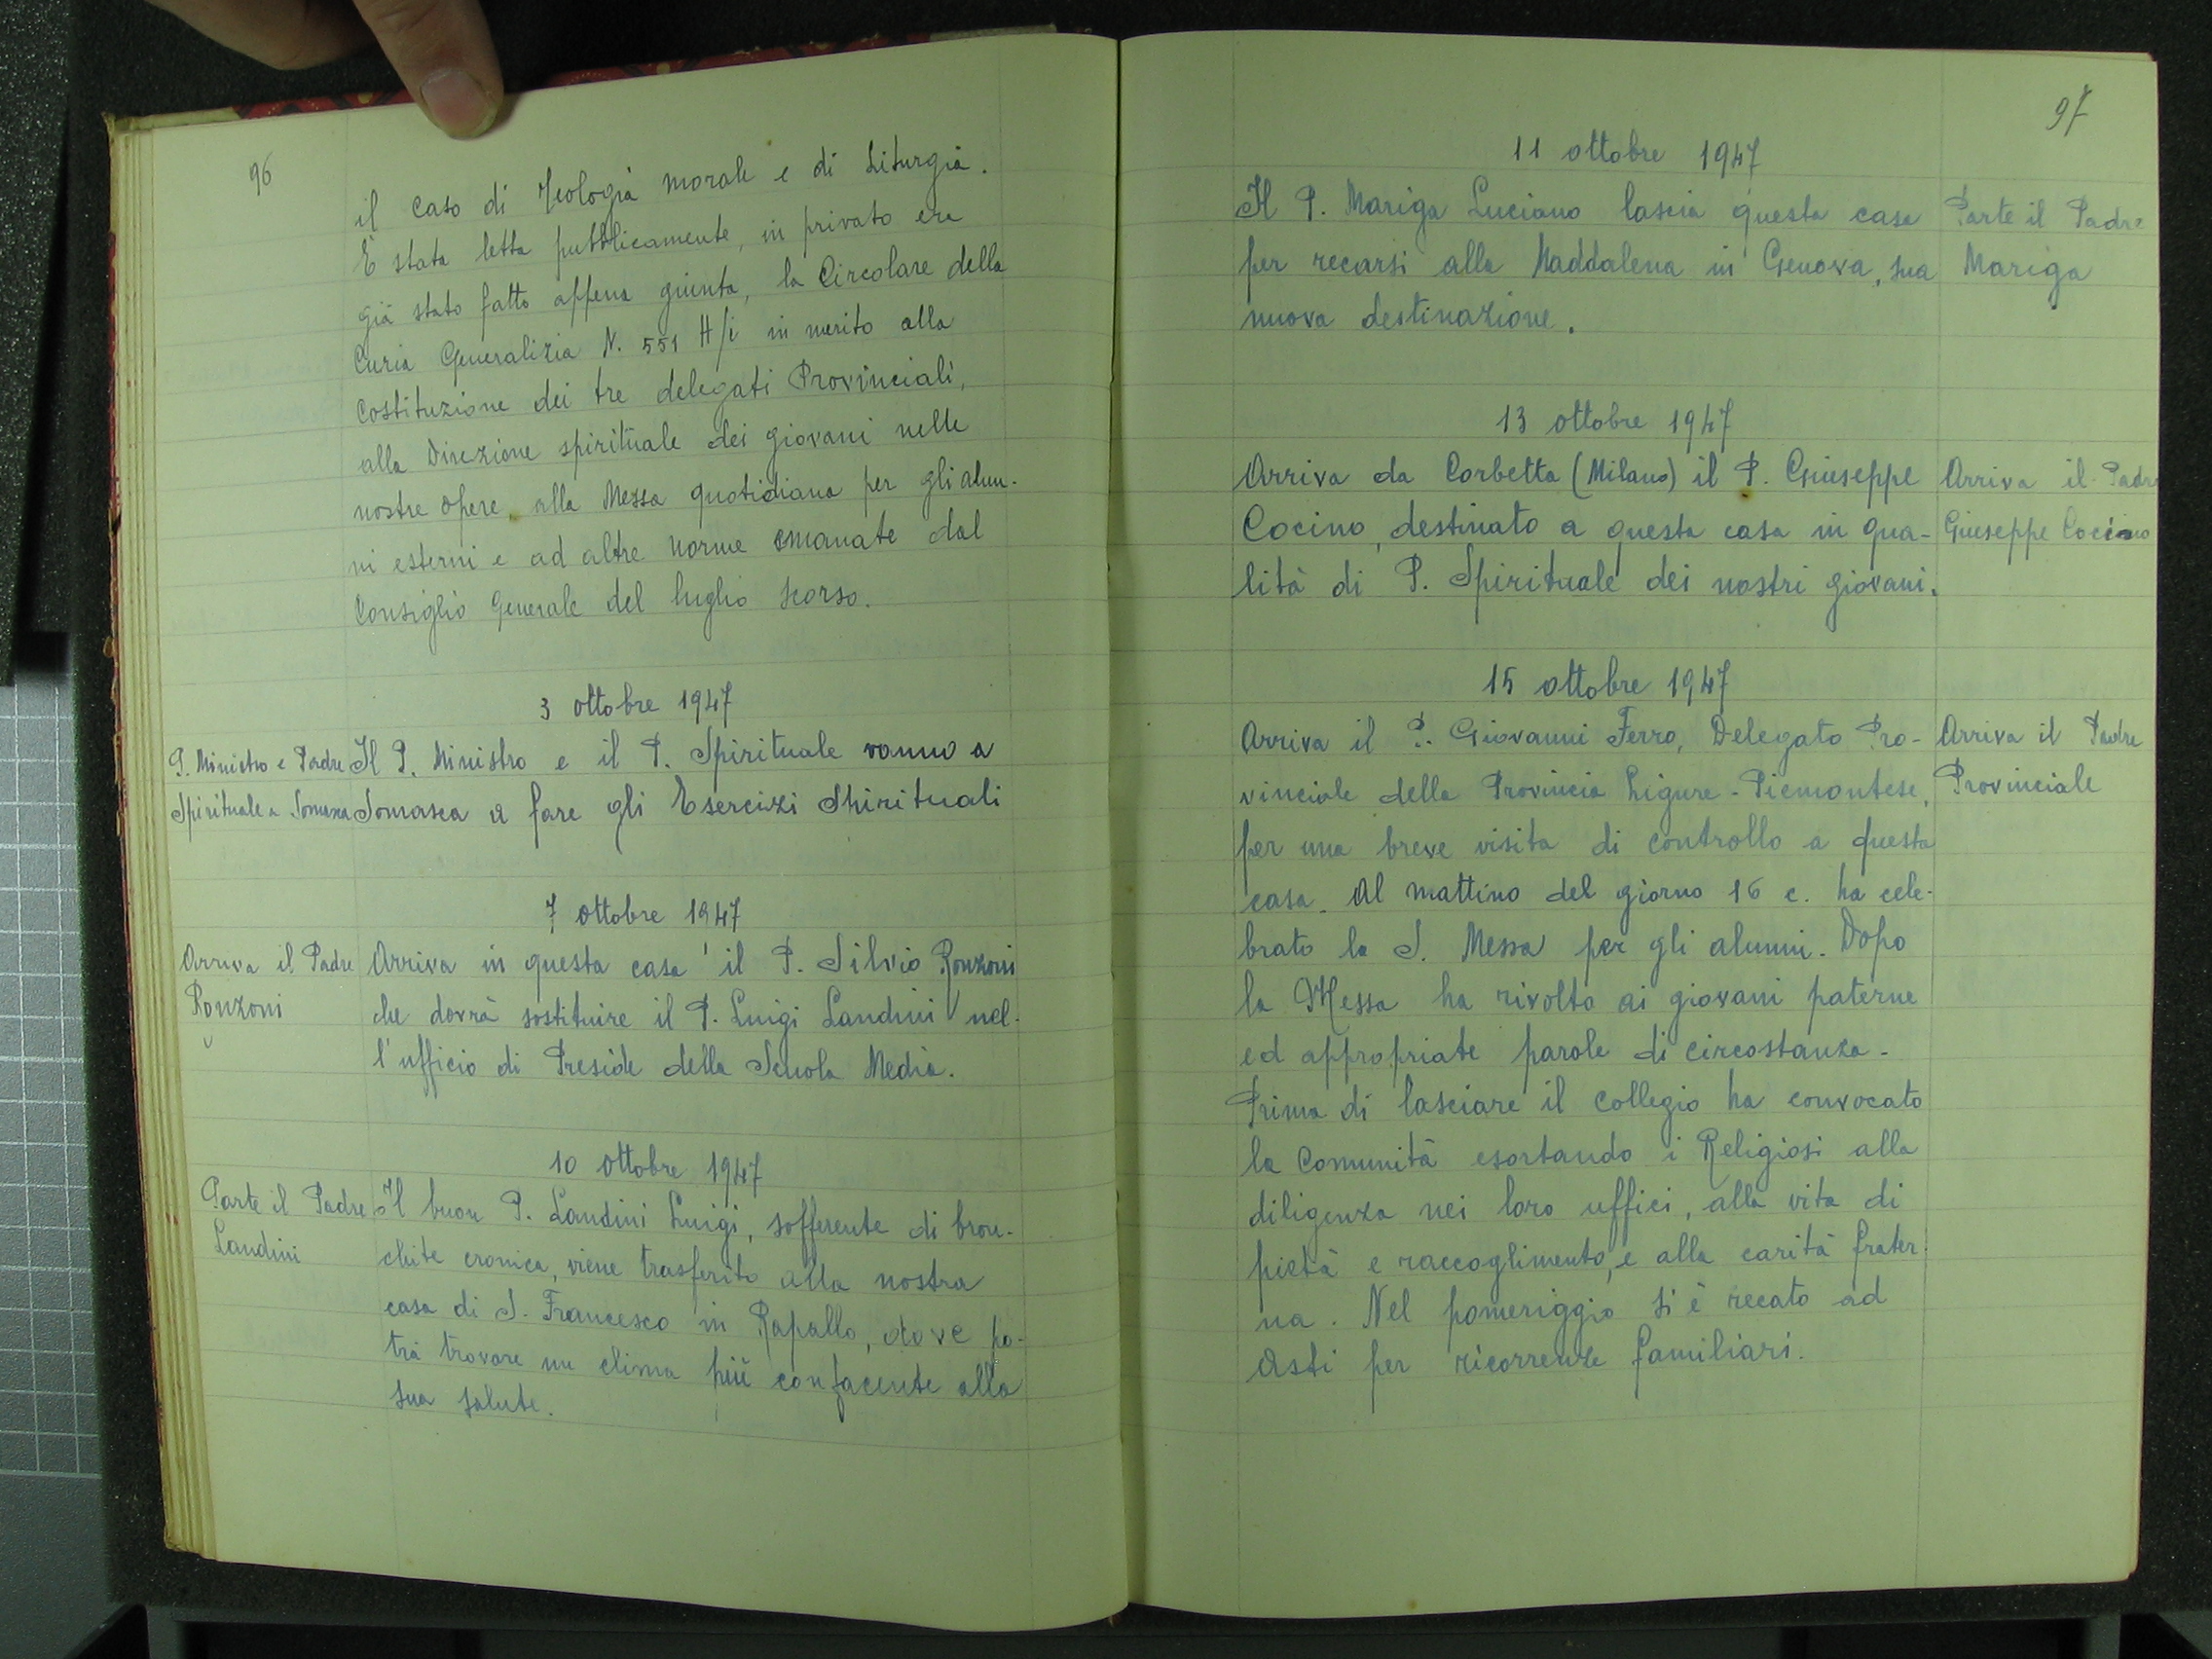 96
il caso di Teologia morale e di Liturgia.
È stata letta pubblicamente, in privato era
già stato fatto appena giunta, la Circolare della
Curia Generalizia N. 551 H/i in merito alla
costituzione dei tre delegati Provinciali,
alla Direzione spirituale dei giovani nelle
nostre opere, alla Messa quotidiana per gli alun-
ni esterni e ad altre norme emanate dal
Consiglio Generale del luglio scorso.
3 ottobre 1947
P. Ministro e Padre
Spirituale a Somasca
Il P. Ministro e il P. Spirituale vanno a
Somasca a fare gli Esercizi Spirituali
7 ottobre 1947
Arriva il Padre
Ronzoni
Arriva in questa casa il P. Silvio Ronzoni
che dovrà sostituire il P. Luigi Landini nel-
l'ufficio di Preside della Scuola Media.
10 ottobre 1947
Parte il Padre
Landini
Il buon P. Landini Luigi, sofferente di bron-
chite cronica, viene trasferito alla nostra
casa di S. Francesco in Rapallo, dove po-
trà trovare un clima più confacente alla
sua salute.
97
11 ottobre 1947
Il P. Mariga Luciano lascia questa casa
per recarsi alla Maddalena in Genova, sua
nuova destinazione.
Parte il Padre
Mariga
13 ottobre 1947
Arriva da Corbetta (Milano) il P. Giuseppe
Cocino, destinato a questa casa in qua-
lità di P. Spirituale dei nostri giovani.
Arriva il Padre
Giuseppe Cocino
15 ottobre 1947
Arriva il P. Giovanni Ferro, Delegato Pro-
vinciale della Provincia Ligure-Piemontese,
per una breve visita di controllo a questa
casa. Al mattino del giorno 16 c. ha cele-
brato la S. Messa per gli alunni. Dopo
la Messa ha rivolto ai giovani paterne
ed appropriate parole di circostanza.
Prima di lasciare il collegio ha convocato
la Comunità esortando i Religiosi alla
diligenza nei loro uffici, alla vita di
pietà e raccoglimento, e alla carità frater-
na. Nel pomeriggio si è recato ad
Asti per ricorrenze familiari.
Arriva il Padre
Provinciale